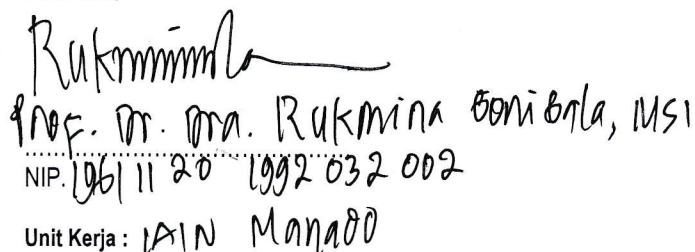 Rukmina
Prof. Dr. Dra. Rukmina Gonibala, MSI
NIP. 19611120 1992 032 002
Unit Kerja : IAIN Manado